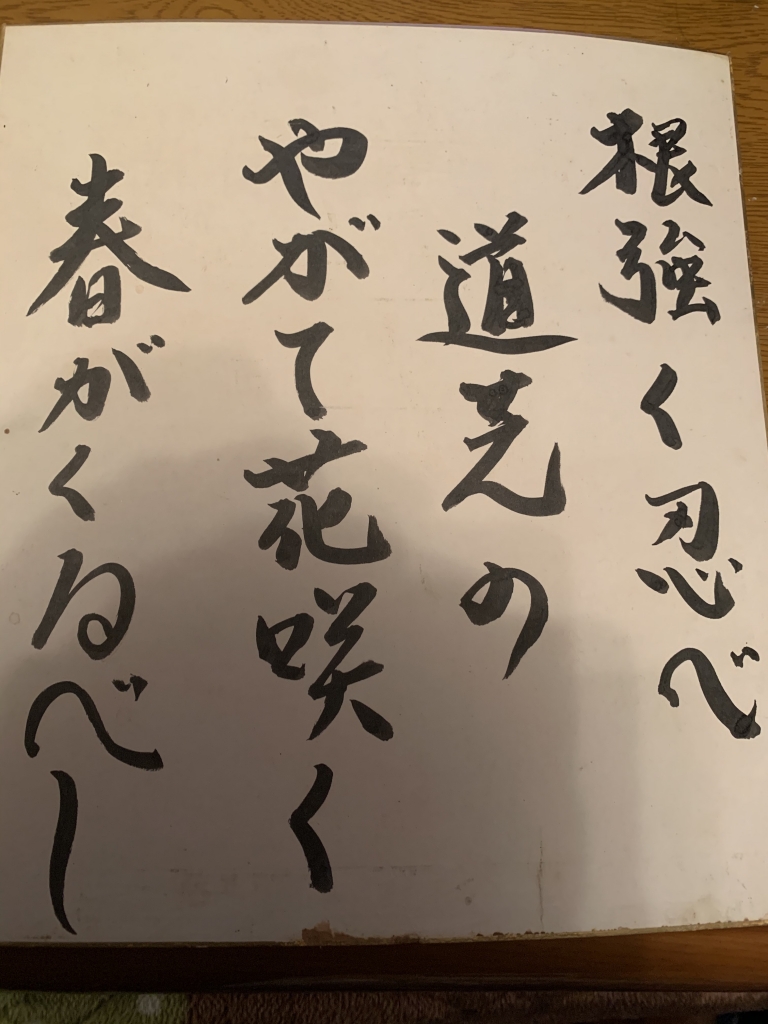 根強く忍べ
道先の
やがて花咲く
春がくるべし